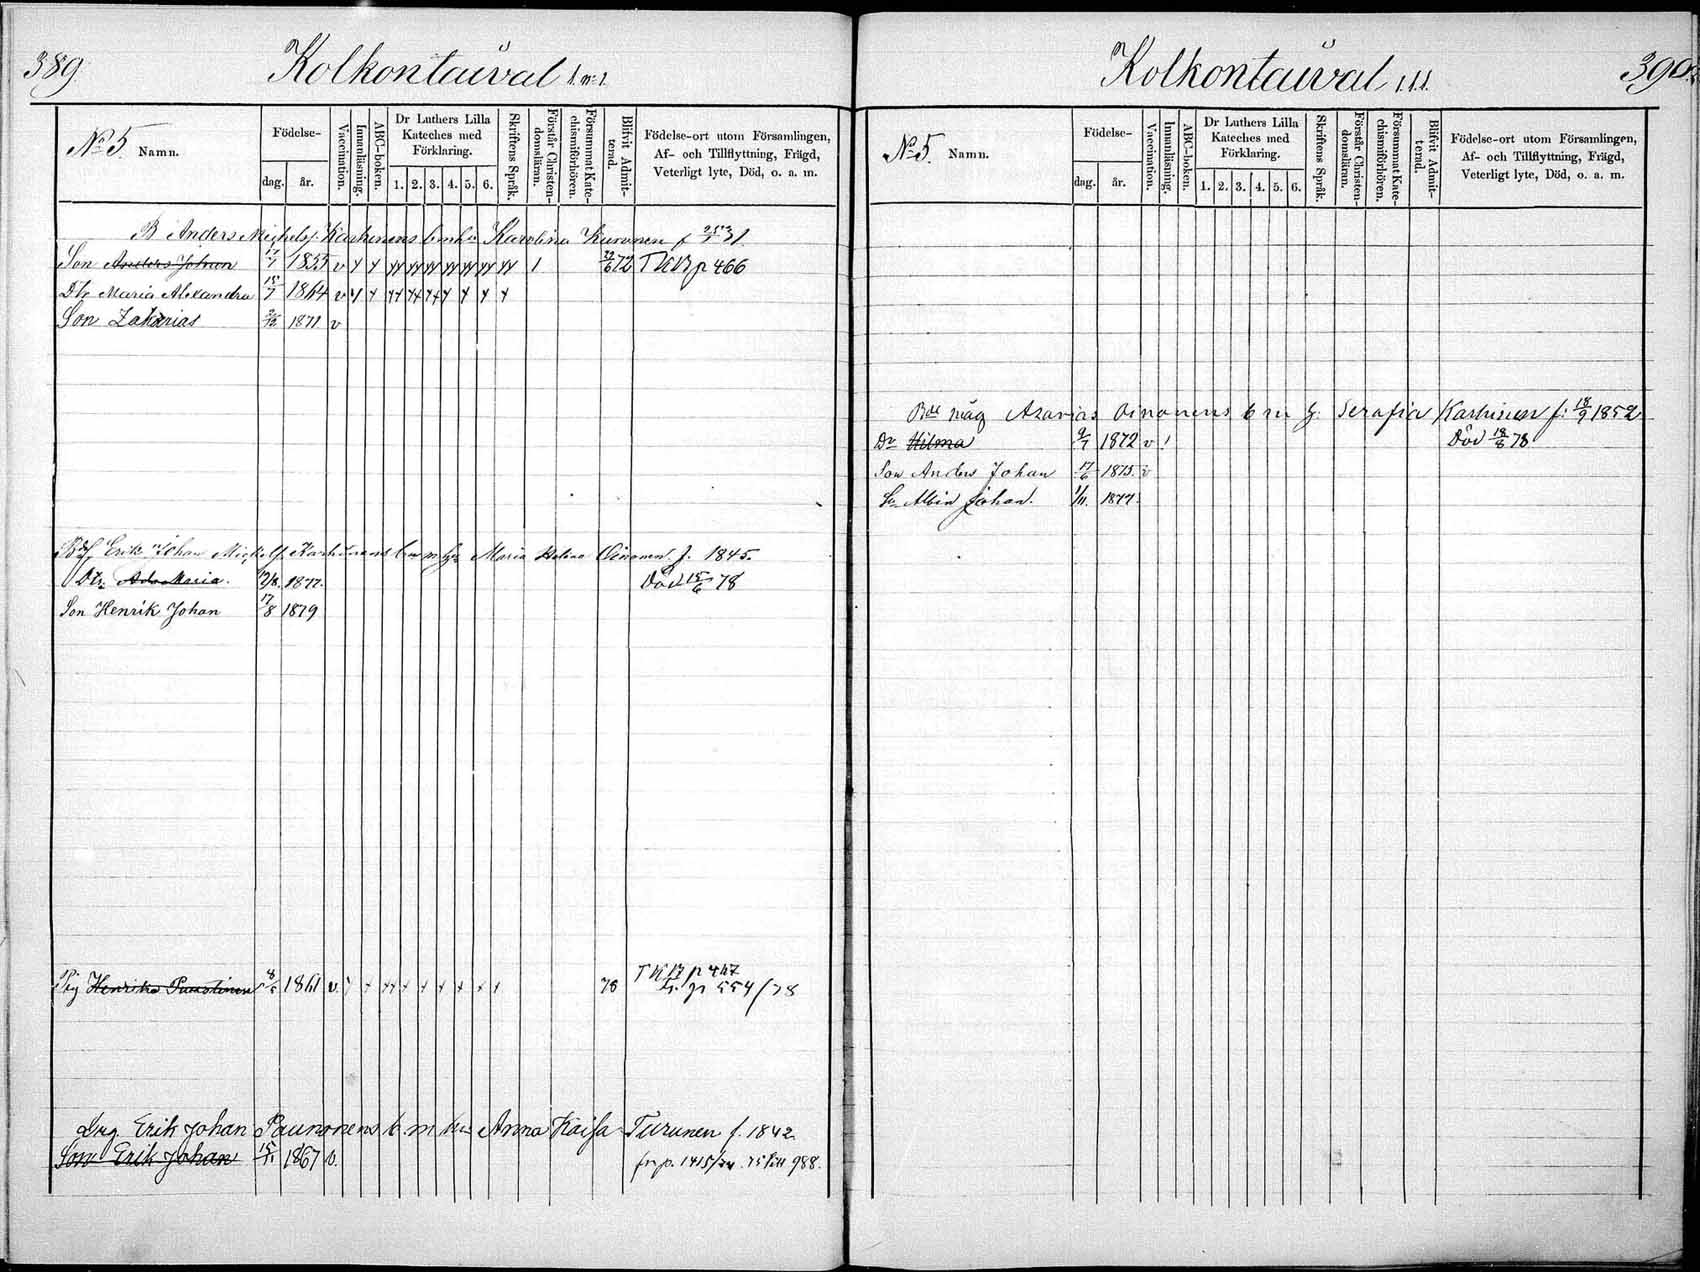 389
Kolkontaival
No 5. Namn.
Födelse-
dag.
år.
Vaccination.
Innanläsning.
ABC-boken.
Dr Luthers Lilla Kateches med Förklaring.
1. 2. 3. 4. 5. 6.
Skriftens Språk.
Förstår Christendomsläran.
Försummat Katechismiförhören.
Blifvit Admitterad.
Födelse-ort utom Församlingen, Af- och Tillflyttning, Frägd, Veterligt lyte, Död, o. a. m.
B Anders Michels Karhinens b m h Karolina Kuronen f 31.
Son Anders Johan 17/7 1855 v 1 72 T KB p 466
Dtr Maria Alexandra 15/7 1864 v
Son Zakarias 1871 v
Bdf Erik Johan Karhinens b m h Maria Helena Oinonen f. 1845.
Dtr Ada Maria. 1877. Död 15/6 78
Son Henrik Johan 17/8 1879
Pig Henrika Paunonen 1861 v. 78 p 467
554/78
Drg. Erik Johan Paunonens b m h Anna Kaisa Turunen f. 1842
Son Erik Johan 1867 fr p. 1415 988.
390
Kolkontaival
No 5. Namn.
Födelse-
dag.
år.
Vaccination.
Innanläsning.
ABC-boken.
Dr Luthers Lilla Kateches med Förklaring.
1. 2. 3. 4. 5. 6.
Skriftens Språk.
Förstår Christendomsläran.
Försummat Katechismiförhören.
Blifvit Admitterad.
Födelse-ort utom Församlingen, Af- och Tillflyttning, Frägd, Veterligt lyte, Död, o. a. m.
Bds måg Azarias Oinonens b m h: Serafia Karhinen f: 18/9 1852
Dr Hilma 9/7 1872 v 1 Död 18/8 78
Son Anders Johan 17/6 1875. v
Sn Albin Johan. 1/11. 1877.